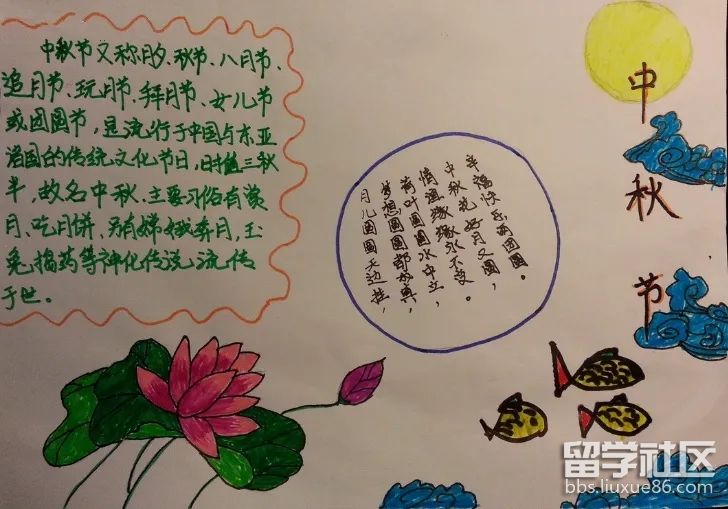 中秋节又称月夕、秋节、八月节、
追月节、玩月节、拜月节、女儿节
或团圆节,是流行于中国与东亚
诸国的传统文化节日,时值三秋
半,故名中秋、主要习俗有赏
月、吃月饼、另有嫦娥奔月,玉
兔捣药等神化传说流传
于世。
月儿圆圆天边挂,
梦想圆圆都成真,
荷叶圆圆水中立,
情温缘缘永不变。
中秋花好月又圆,
幸福快乐两团圆。
中秋节
留学社区
bbs.liuxue86.com